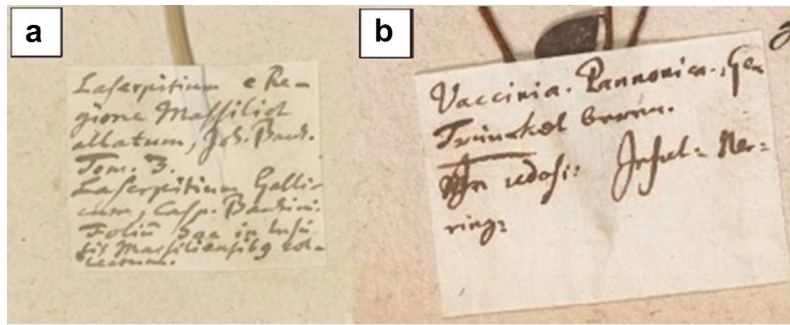 a
Laserpitium e Re-
gione Massiliæ
allatum, Joh. Bauh.
Tom. 3.
Laserpitium Galli-
cum, Casp. Bauhini.
Foliū hoc in
Massiliensibq col-
lectum.
b
Vaccinia. Pannonica., Ger.
Trunckel beren.
udosi: Insul: Ner-
ring: